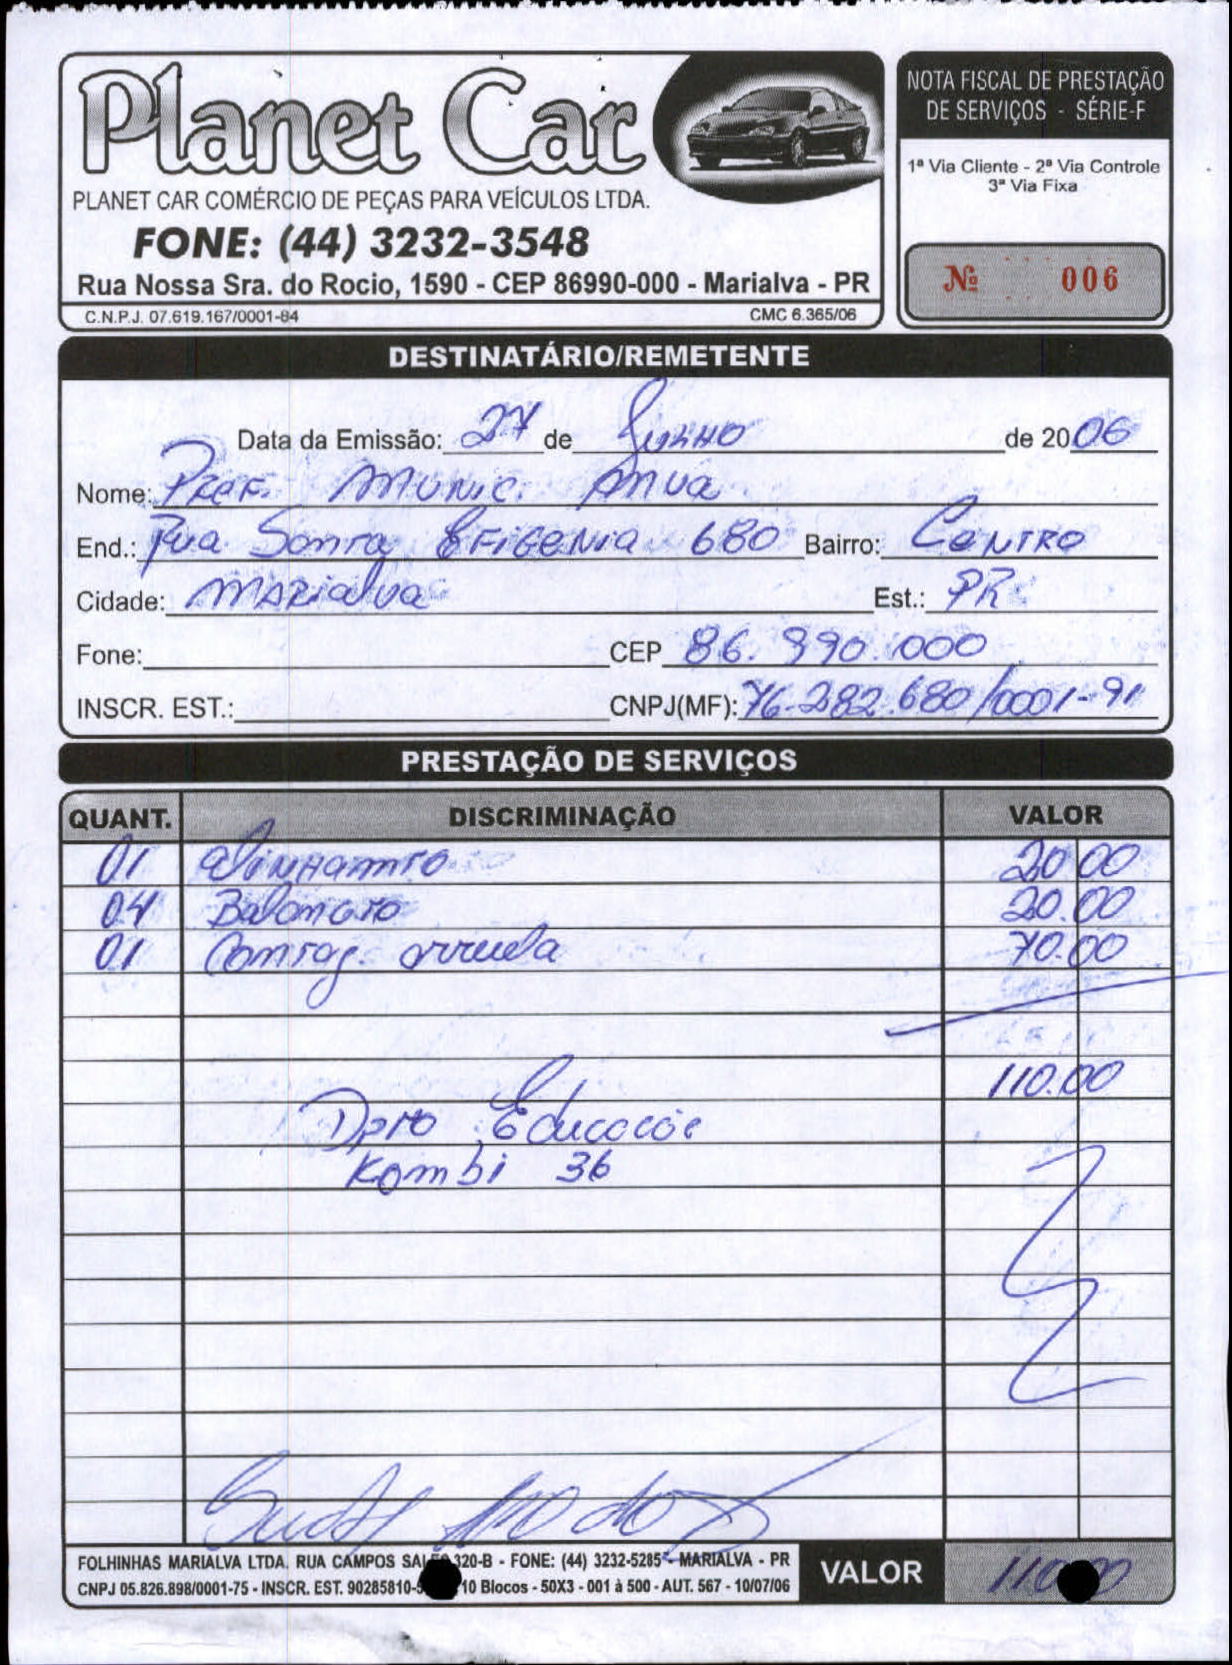 Planet Car
NOTA FISCAL DE PRESTAÇÃO
DE SERVIÇOS - SÉRIE-F
1ª Via Cliente - 2ª Via Controle
3ª Via Fixa
PLANET CAR COMÉRCIO DE PEÇAS PARA VEÍCULOS LTDA.
FONE: (44) 3232-3548
Rua Nossa Sra. do Rocio, 1590 - CEP 86990-000 - Marialva - PR
Nº 006
C.N.P.J. 07.619.167/0001-84 CMC 6.365/06
DESTINATÁRIO/REMETENTE
Data da Emissão: 27 de de 2006
Nome: Pref. Munic.
End.: Rua Santa Efigenia 680 Bairro: Centro
Cidade: Marialva Est.: PR
Fone: CEP 86.990.000
INSCR. EST.: CNPJ(MF): 76.282.680/0001-91
PRESTAÇÃO DE SERVIÇOS
QUANT. DISCRIMINAÇÃO VALOR
01 20.00
04 20.00
01 arruela 70.00
110.00
Dpto Educação
Kombi 36
FOLHINHAS MARIALVA LTDA. RUA CAMPOS 320-B - FONE: (44) 3232-5285 - MARIALVA - PR
CNPJ 05.826.898/0001-75 - INSCR. EST. 10 Blocos - 50X3 - 001 à 500 - AUT. 567 - 10/07/06
VALOR